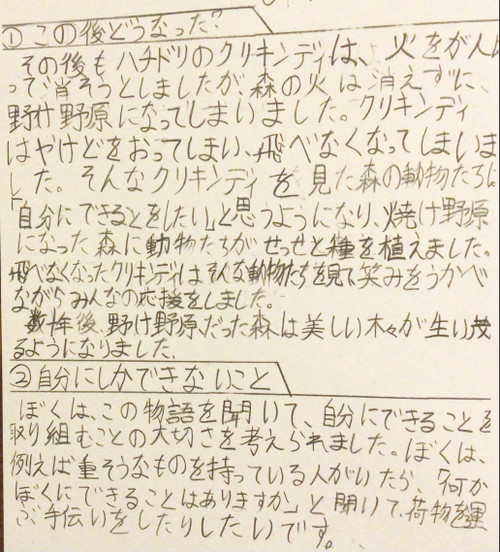 ①この後どうなった?
その後もハチドリのクリキンディは、火をが人ば
って消そうとしましたが、森の火は消えずに、
野け野原になってしまいました。クリキンディ
はやけどをおってしまい、飛べなくなってしまいま
した。そんなクリキンディを見た森の動物たちは
「自分にできることをしたい」と思うようになり、焼け野原
になった森に動物たちがせっせと種を植えました。
飛べなくなったクリキンディはそんな動物たちを見て笑みをうかべ
ながらみんなの応援をしました。
数十年後、野け野原だった森は美しい木々が生い茂
るようになりました。
②自分にしかできないこと
ぼくは、この物語を聞いて、自分にできることを
取り組むことの大切さを考えられました。ぼくは、
例えば重そうなものを持っている人がいたら、「何か
ぼくにできることはありますか」と聞いて、荷物を運
ぶ手伝いをしたりしたいです。